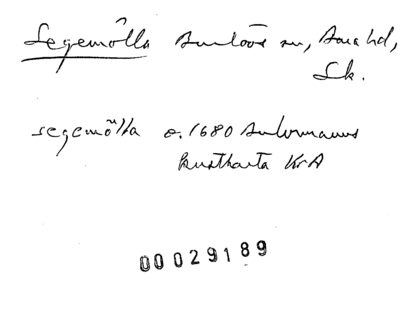 Segemölla Burlövs sn, Bara hd,
Sk.
segemölla o. 1680 Buhrmanns
kustharta KrA
00029189